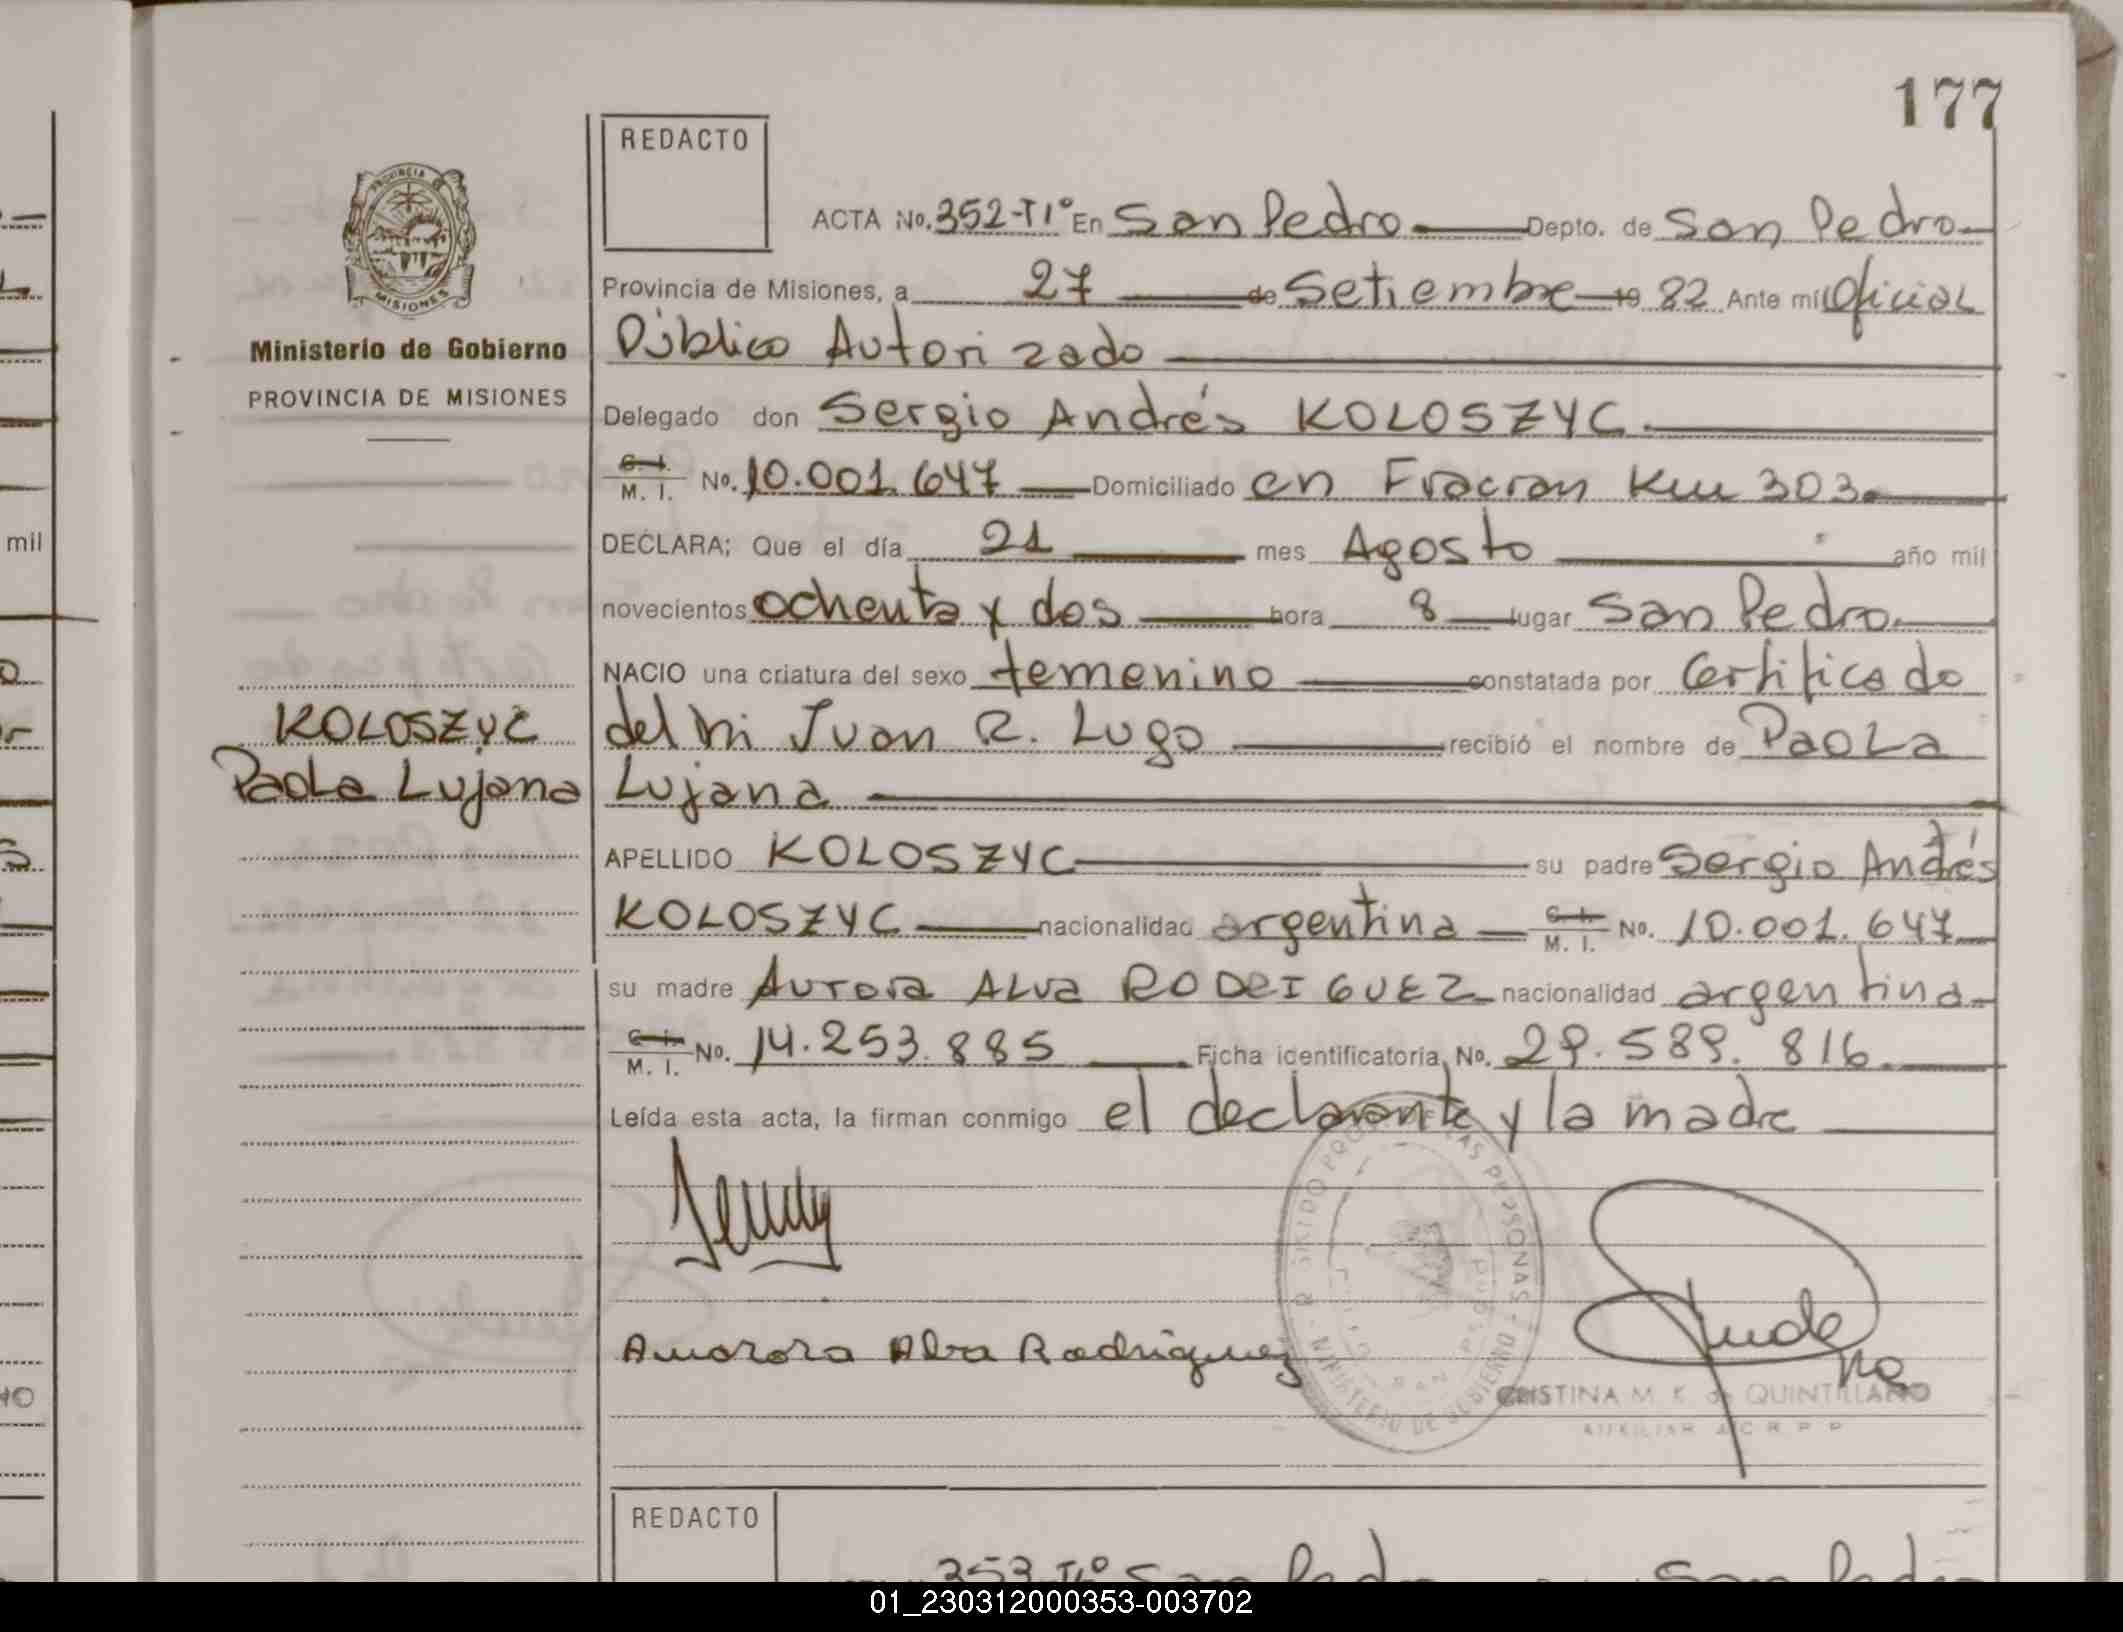 177
REDACTO
PROVINCIA DE
MISIONES
Ministerio de Gobierno
PROVINCIA DE MISIONES
ACTA No. 352-T1º En San Pedro Depto. de San Pedro
Provincia de Misiones, a 27 de Setiembre 19 82 Ante mi Oficial
Público Autorizado
Delegado don Sergio Andrés KOLOSZYC
C. I. M. I. No. 10.001.647 Domiciliado en Fracran Km 303
DECLARA; Que el día 21 mes Agosto año mil
novecientos ochenta y dos hora 8 lugar San Pedro
NACIO una criatura del sexo femenino constatada por Certificado
del Juan R. Lugo recibió el nombre de Paola
Lujana
KOLOSZYC
Paola Lujana
APELLIDO KOLOSZYC su padre Sergio Andrés
KOLOSZYC nacionalidad argentina C. I. M. I. No. 10.001.647
su madre Aurora Alva RODRIGUEZ nacionalidad argentina
C. I. M. I. No. 14.253.885 Ficha identificatoria No. 29.589.816
Leída esta acta, la firman conmigo el declarante y la madre
Auorora Alva Rodriguez
MINISTERIO DE GOBIERNO
CRISTINA M. K. de QUINTILLANO
AUXILIAR
REDACTO
353 San Pedro San Pedro
mil
01_230312000353-003702